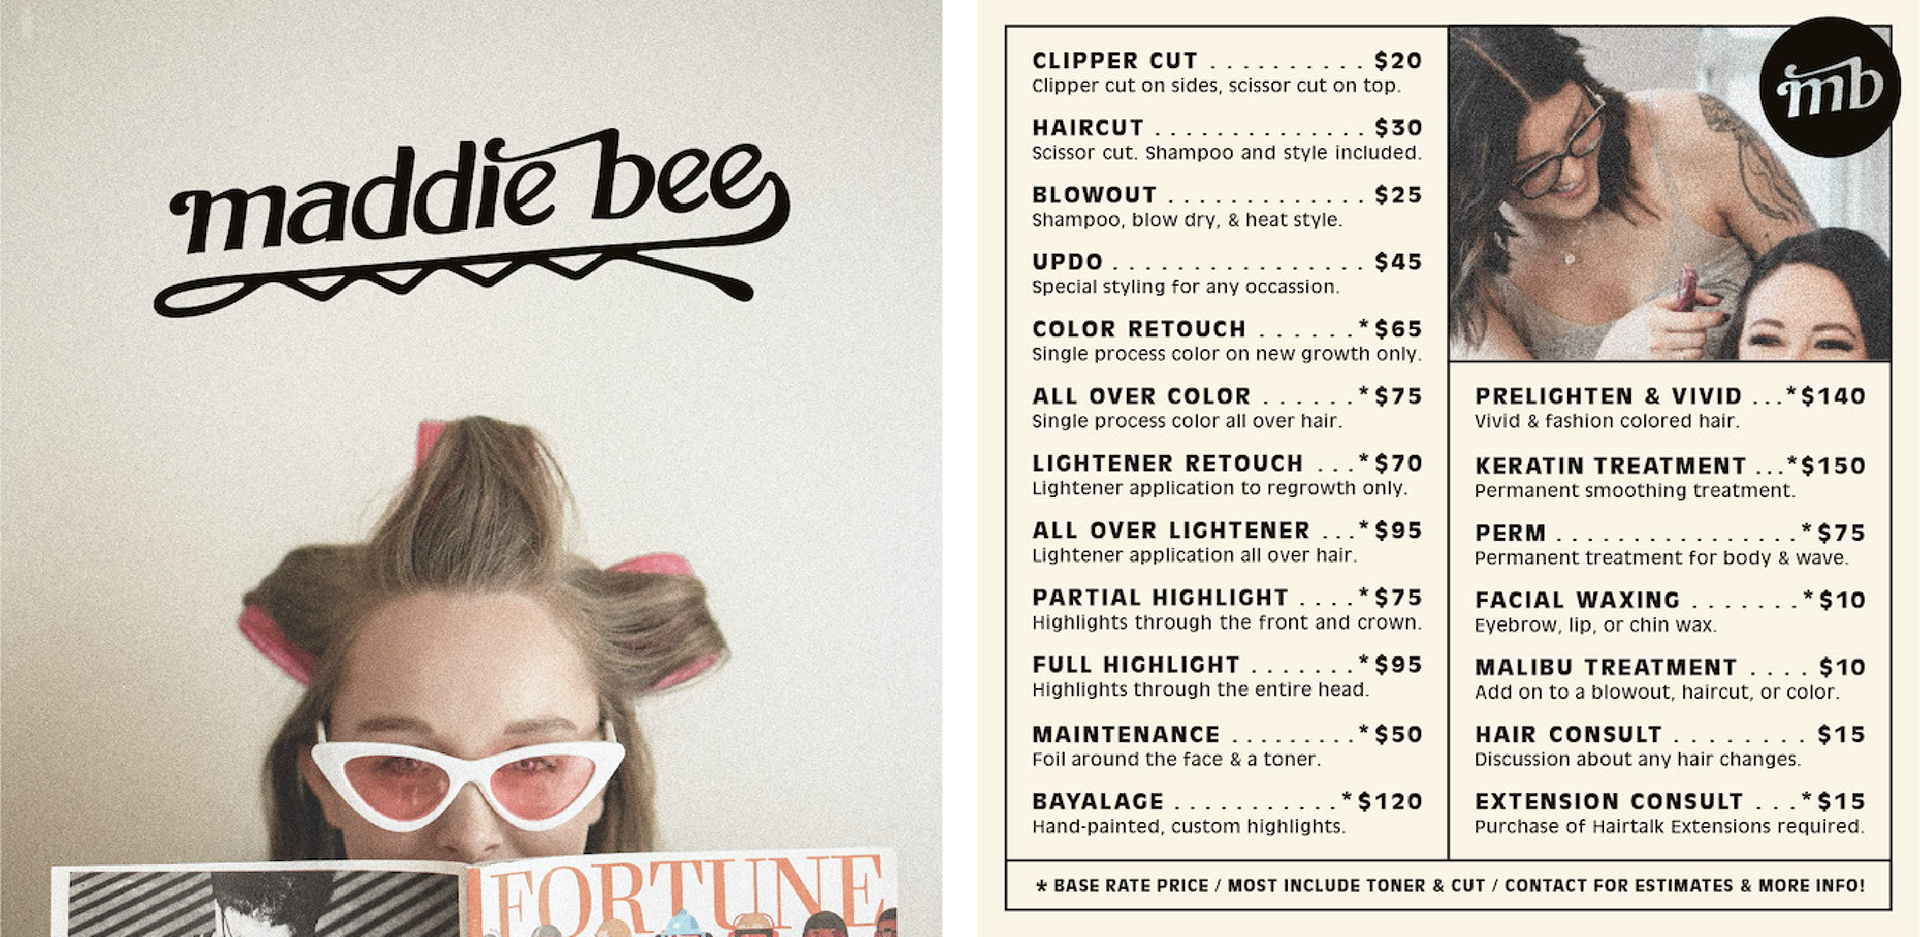 maddie bee
FORTUNE
mb
CLIPPER CUT . . . . . . . . . . $20
Clipper cut on sides, scissor cut on top.
HAIRCUT . . . . . . . . . . . . . . $30
Scissor cut. Shampoo and style included.
BLOWOUT . . . . . . . . . . . . . $25
Shampoo, blow dry, & heat style.
UPDO . . . . . . . . . . . . . . . . . $45
Special styling for any occassion.
COLOR RETOUCH . . . . . . *$65
Single process color on new growth only.
ALL OVER COLOR . . . . . . *$75
Single process color all over hair.
LIGHTENER RETOUCH . . . *$70
Lightener application to regrowth only.
ALL OVER LIGHTENER . . . *$95
Lightener application all over hair.
PARTIAL HIGHLIGHT . . . . *$75
Highlights through the front and crown.
FULL HIGHLIGHT . . . . . . . *$95
Highlights through the entire head.
MAINTENANCE . . . . . . . . . *$50
Foil around the face & a toner.
BAYALAGE . . . . . . . . . . . . *$120
Hand-painted, custom highlights.
PRELIGHTEN & VIVID . . . *$140
Vivid & fashion colored hair.
KERATIN TREATMENT . . . *$150
Permanent smoothing treatment.
PERM . . . . . . . . . . . . . . . . *$75
Permanent treatment for body & wave.
FACIAL WAXING . . . . . . . *$10
Eyebrow, lip, or chin wax.
MALIBU TREATMENT . . . . $10
Add on to a blowout, haircut, or color.
HAIR CONSULT . . . . . . . . $15
Discussion about any hair changes.
EXTENSION CONSULT . . . *$15
Purchase of Hairtalk Extensions required.
* BASE RATE PRICE / MOST INCLUDE TONER & CUT / CONTACT FOR ESTIMATES & MORE INFO!